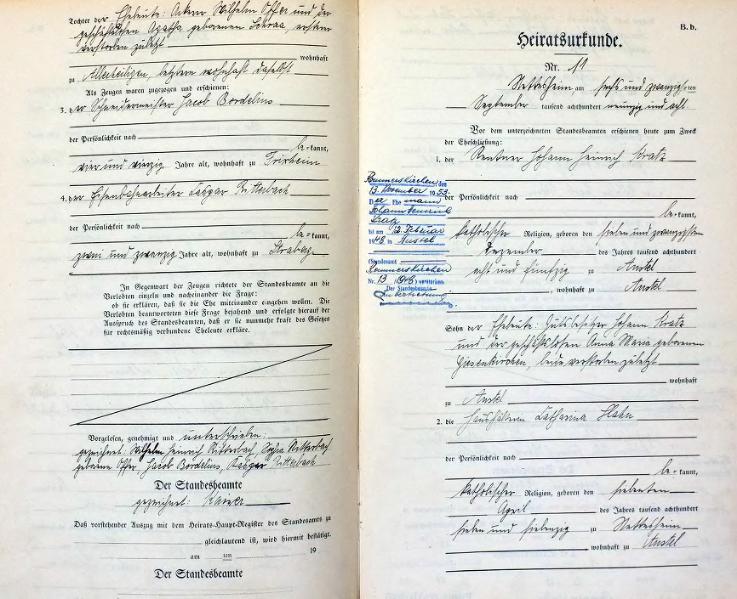 Tochter der Eheleute: Ackerer Wilhelm Offer und der
geschäftslosen Agatha geborenen
verstorben zuletzt
wohnhaft
zu Allerheiligen, letztere wohnhaft daselbst
Als Zeugen waren zugezogen und erschienen:
3. der Schneidermeister Jacob Bordelius
der Persönlichkeit nach
be-kannt,
vier und vierzig Jahre alt, wohnhaft zu Frixheim
4. der Eisenbahnarbeiter Caspar Ritterbach
der Persönlichkeit nach
be-kannt,
zwei und zwanzig Jahre alt, wohnhaft zu Straberg
In Gegenwart der Zeugen richtete der Standesbeamte an die
Verlobten einzeln und nacheinander die Frage:
ob sie erklären, daß sie die Ehe miteinander eingehen wollen. Die
Verlobten beantworteten diese Frage bejahend und erfolgte hierauf der
Ausspruch des Standesbeamten, daß er sie nunmehr kraft des Gesetzes
für rechtsmäßig verbundene Eheleute erkläre.
Vorgelesen, genehmigt und unterschrieben
gezeichnet: Wilhelm Heinrich Ritterbach, Sophia Ritterbach
geborene Offer, Jacob Bordelius, Caspar Ritterbach
Der Standesbeamte
gezeichnet:
Daß vorstehender Auszug mit dem Heirats-Haupt-Register des Standesamts zu
gleichlautend ist, wird hiermit bestätigt.
am ten 19
Der Standesbeamte
B. b.
Heiratsurkunde.
Nr. 11
Nettesheim am sechs und zwanzigsten
September tausend achthundert neunzig und acht
Vor dem unterzeichneten Standesbeamten erschienen heute zum Zweck
der Eheschließung:
1. der Rentner Johann Heinrich Kratz
der Persönlichkeit nach
be-kannt,
katholischer Religion, geboren den sieben und zwanzigsten
Dezember des Jahres tausend achthundert
acht und fünfzig zu Anstel
wohnhaft zu Anstel
Rommerskirchen, den
13. November 1953
Der Ehemann
Johann Heinrich
Kratz
ist am 12. Februar
1943 in Anstel
(Standesamt
Rommerskirchen
Nr. 13 1943) verstorben
Der Standesbeamte
In Vertretung
Sohn der Eheleute: Gutsbesitzer Johann Kratz
und der geschäftslosen Anna Maria geborenen
Giesenkirchen, beide verstorben zuletzt
wohnhaft
zu Anstel
2. die Haushälterin Catharina Hahn
der Persönlichkeit nach
be-kannt,
katholischer Religion, geboren den siebenten
April des Jahres tausend achthundert
sieben und siebenzig zu Nettesheim
wohnhaft zu Anstel